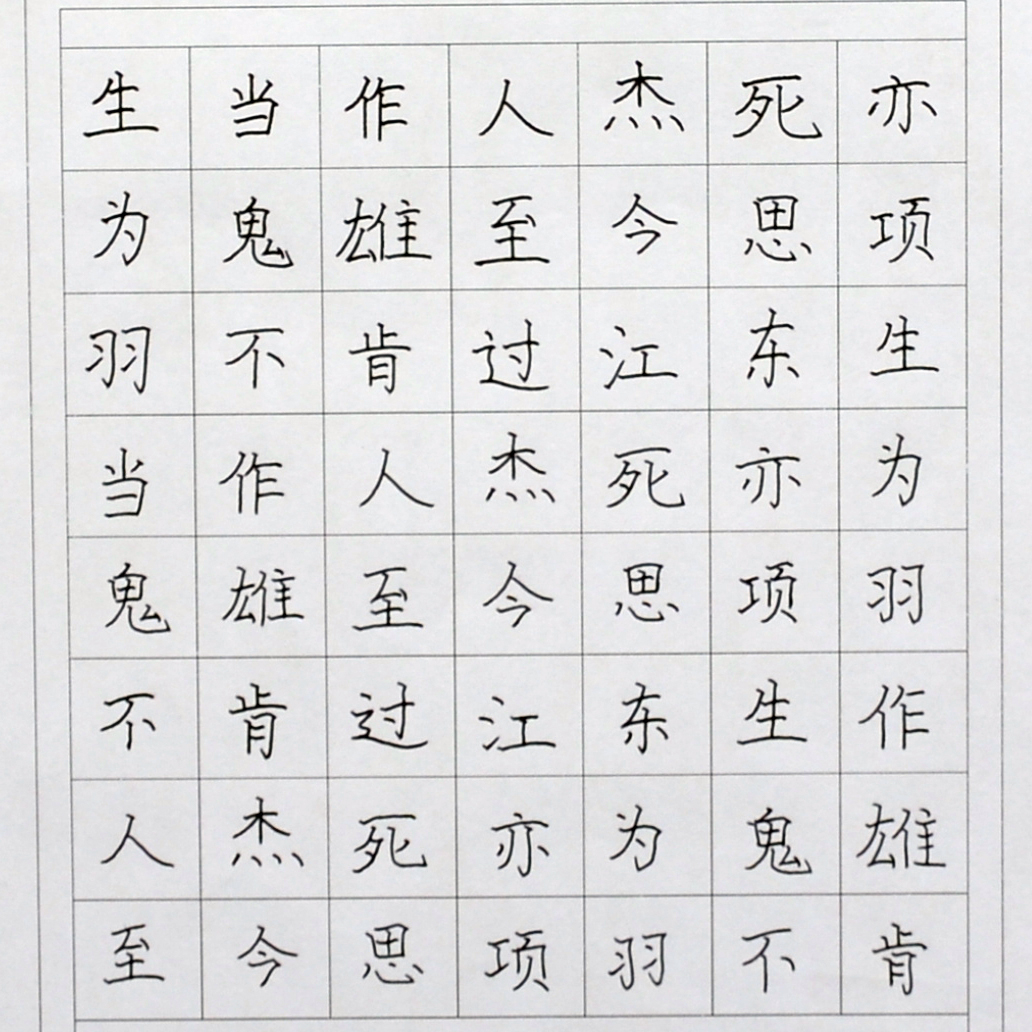 生当作人杰死亦
为鬼雄至今思项
羽不肯过江东生
当作人杰死亦为
鬼雄至今思项羽
不肯过江东生作
人杰死亦为鬼雄
至今思项羽不肯